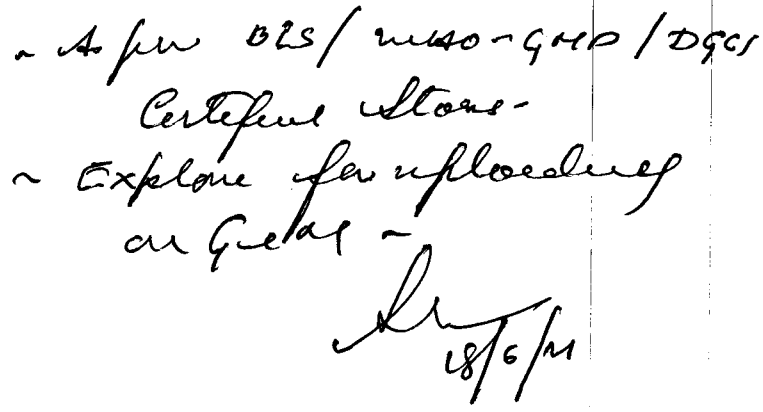 - As per BIS / WHO-GMP / DGCI
Certified Store -
~ Explore for uploading
on GeM -
18/6/21